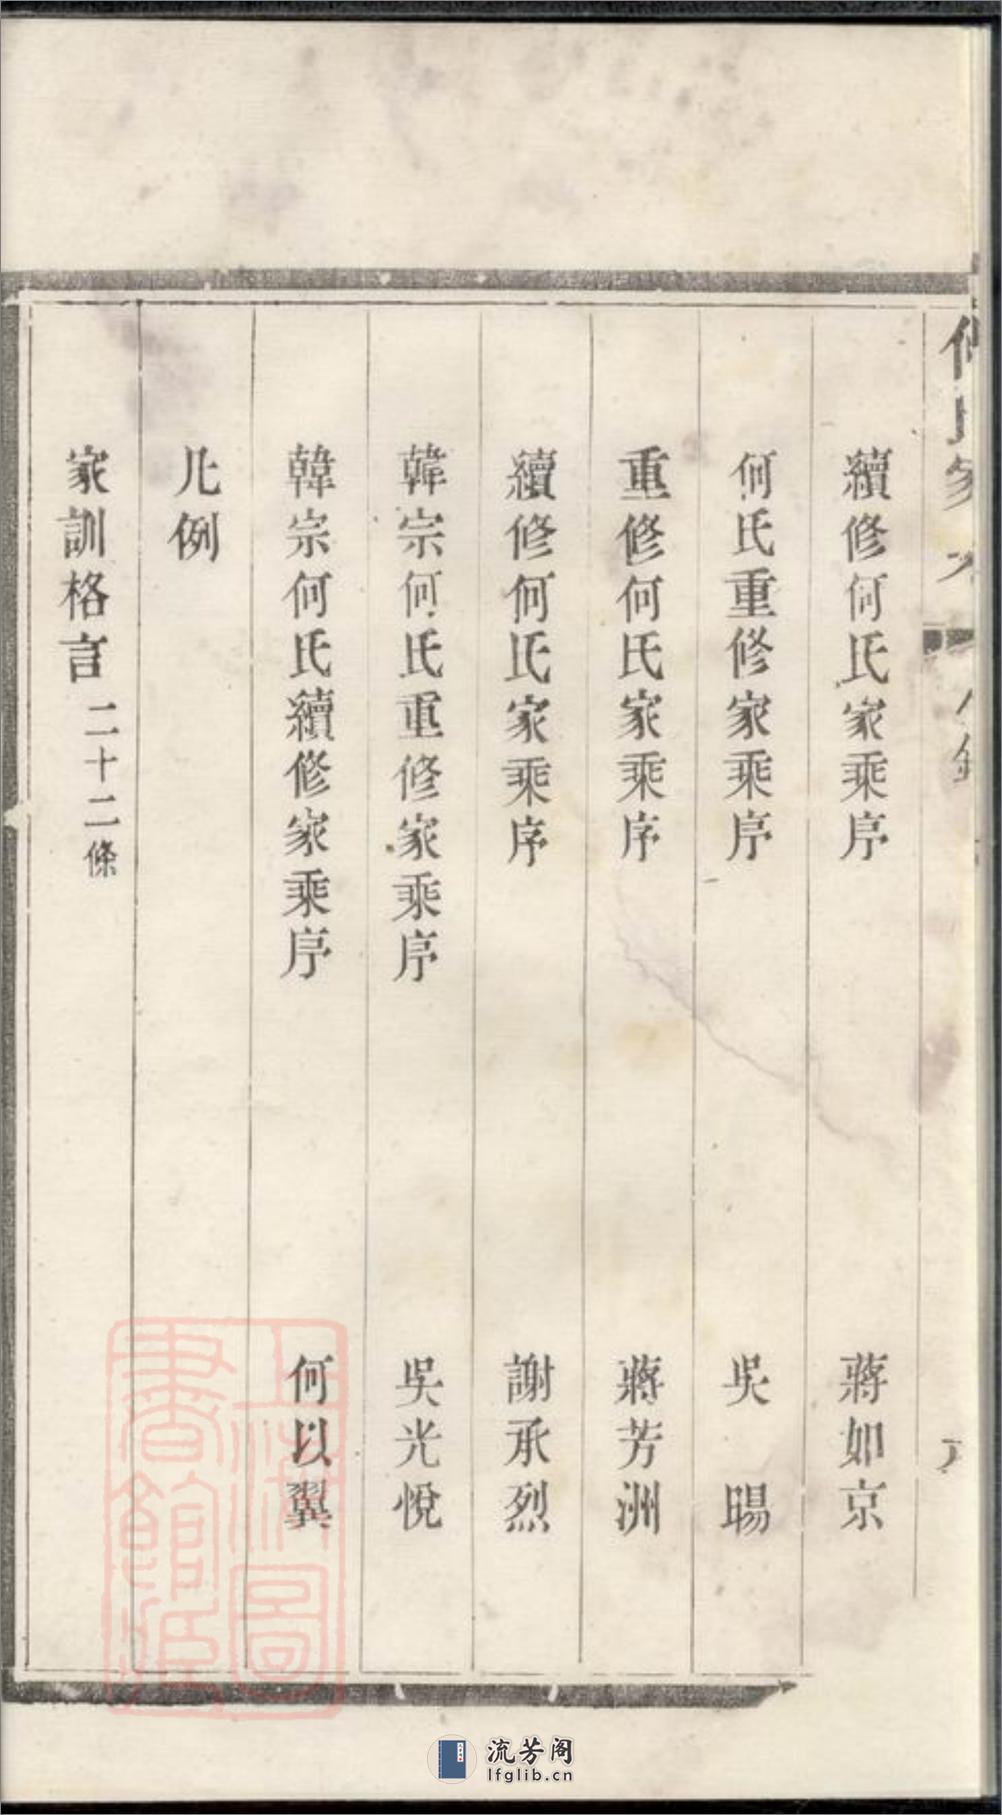 續修何氏家乘序 蔣如京
何氏重修家乘序 吳暘
重修何氏家乘序 蔣芳洲
續修何氏家乘序 謝承烈
韓宗何氏重修家乘序 吳光悅
韓宗何氏續修家乘序 何以翼
凡例
家訓格言 二十二條
上海圖書館藏
流芳阁
lfglib.cn